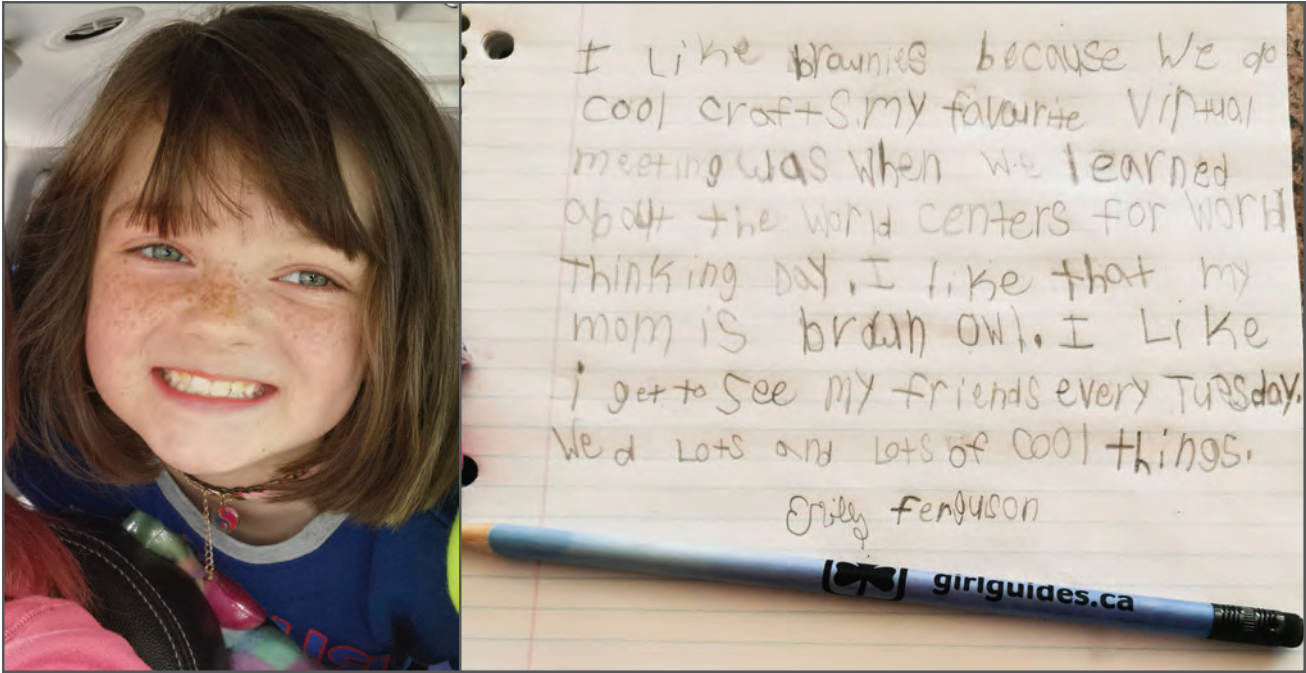 I Like brownies because We do
cool crafts. My favourite Virtual
meeting was when we learned
about the world centers for World
Thinking Day. I like that my
mom is brown owl. I Like
i get to see my friends every Tuesday.
We d Lots and Lots of cool things.
Emily Ferguson
girlguides.ca